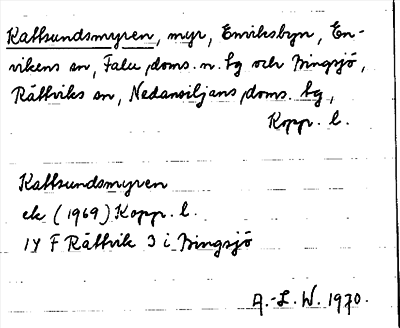 Kattsundsmyren, myr, Enviksbyn, En-
vikens sn, Falu doms. n. bg och Bingsjö,
Rättviks sn, Nedansiljans doms. bg,
Kopp. l.
Kattsundsmyren
ek (1969) Kopp. l.
14 F Rättvik 3 i Bingsjö
A.-L. W. 1970.